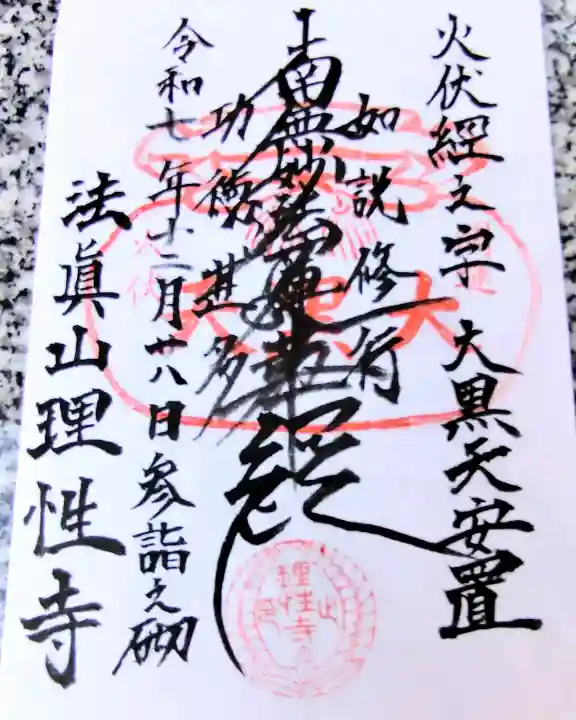 火伏經文字 大黒天安置
如説修行
南無妙法蓮華経
功徳甚多
令和七年十二月廿八日参詣之砌
法眞山理性寺
大黒天
火伏
理性寺